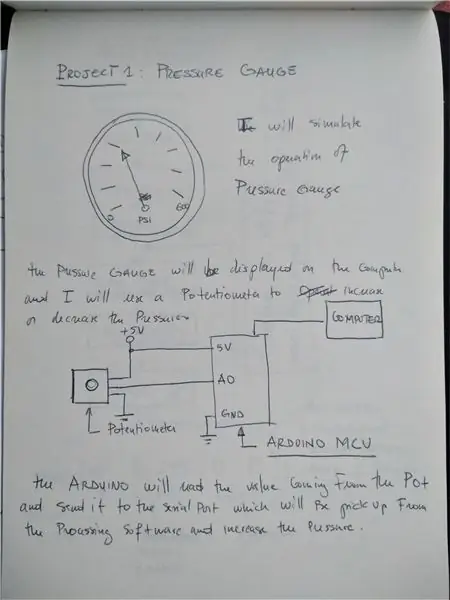 PROJECT 1: PRESSURE GAUGE
I will simulate
the operation of
Pressure Gauge
0
PSI
600
the Pressure GAUGE will be displayed on the Computer
and I will use a Potentiometer to increase
or decrease the Pressure
+5V
COMPUTER
5V
A0
GND
Potentiometer
ARDUINO MCU
the ARDUINO will read the value Coming From the Pot
and send it to the serial Port which will Be pick up From
the Processing Software and increase the Pressure.